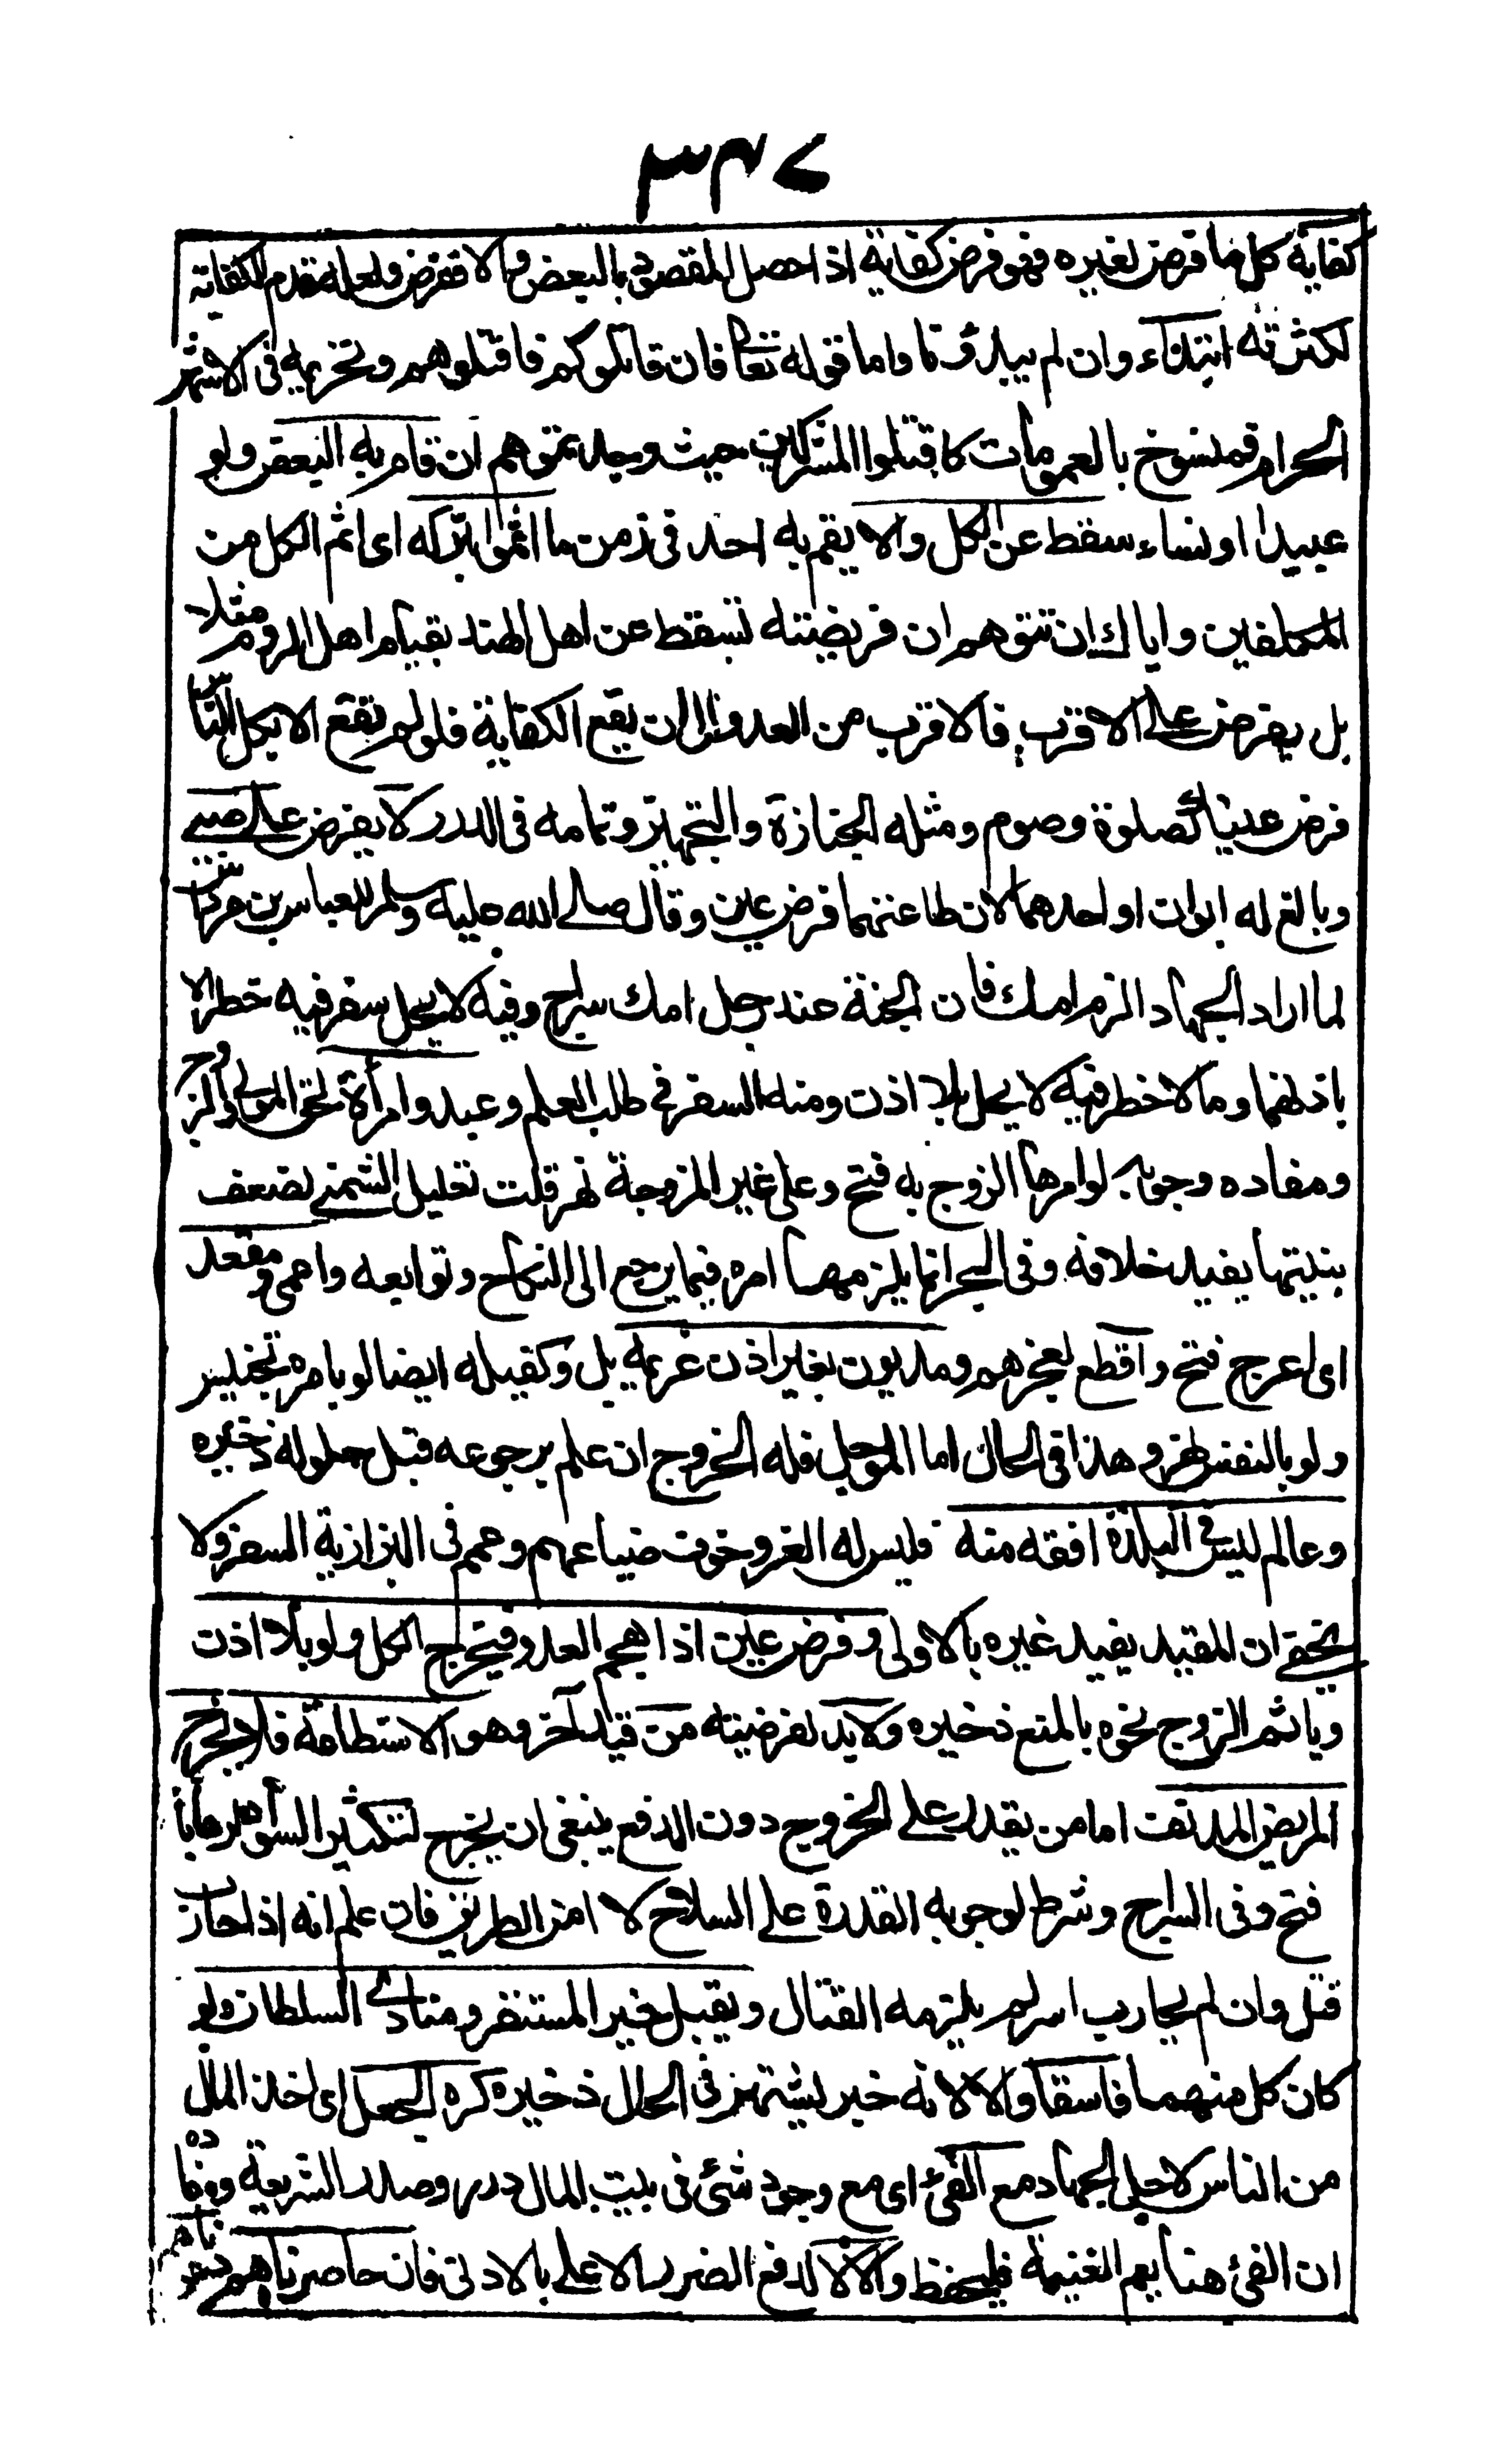 ٣٤٧
كفاية كل ما فرض لغيره فهو فرض كفاية اذا حصل المقصود بالبعض والا ففرض ولعله قدم الكفاية
لكثرته ابتداء وان لم يبدؤنا واما قوله تعالى فان قاتلوكم فاقتلوهم وتحريمه فى الاشهر
الحرام فمنسوخ بالعمومات كاقتلوا المشركين حيث وجدتموهم ان قام به البعض ولو
عبيدا او نساء سقط عن الكل والا يقم به احد فى زمن ما اثموا بتركه اى اثم الكل من
المكلفين واياك ان تتوهم ان فريضته تسقط عن اهل الهند بقيام اهل الروم مثلا
بل يفرض على الاقرب فالاقرب من العدو الى ان يقع الكفاية فلو لم تقع الا بكل الناس
فرض عينا كصلوة وصوم ومثله الجنازة والتجهيز وتمامه فى الدرر لا يفرض على صبى
وبالغ له ابوان او احدهما لان طاعتهما فرض عين وقال صلى الله عليه وسلم للعباس بن مرداس
لما اراد الجهاد الزم امك فان الجنة عند رجل امك سراج وفيه لا يحل سفر فيه خطر الا
باذنهما وما لا خطر فيه لا يحل بلا اذن ومنه السفر فى طلب العلم وعبد وامرأة لحق المولى والزوج
ومفاده وجوبه لو امرها الزوج به فتح وعلى غير المزوجة نهر قلت تعليل الشمنى لضعف
بنيتها يفيد خلافه وفى البحر انما يلزمها امره فيما يرجع الى النكاح وتوابعه واعمى ومقعد
اى اعرج فتح واقطع لعجزهم ومديون بغير اذن غريمه بل وكفيله ايضا لو بامره تجنيس
ولو بالنفس نهر وهذا فى الحال اما المؤجل فله الخروج ان علم برجوعه قبل حلوله ذخيره
وعالم ليس فى البلدة افقه منه فليس له الغزو خوف ضياعهم وعمم فى البزازية السفر ولا
يخفى ان المقيد يفيد غيره بالاولى وفرض عين اذا هجم العدو فيخرج الكل ولو بلا اذن
وياثم الزوج نحوه بالمنع ذخيره ولابد لفرضيته من قيد آخر وهو الاستطاعة فلا يخرج
المريض المدنف اما من يقدر على الخروج دون الدفع ينبغى ان يخرج لتكثير السواد ارهابا
فتح وفى السراج وشرط لوجوبه القدرة على السلاح لا امن الطريق فان علم انه اذا حارب
قتل وان لم يحارب اسر لم يلزمه القتال ويقبل خبر المستنفر ومنادى السلطان ولو
كان كل منهما فاسقا والا لانه خبر يشتهر فى الحال ذخيره كره الجعل اى اخذ المال
من الناس لاجل الجهاد مع الفئ اى مع وجود شئ فى بيت المال درر وصدر الشريعة ومفاده
ان الفئ هنا يعم الغنيمة فليحفظ والا لا لدفع الضرر الاعلى بالادنى فان حاصرناهم